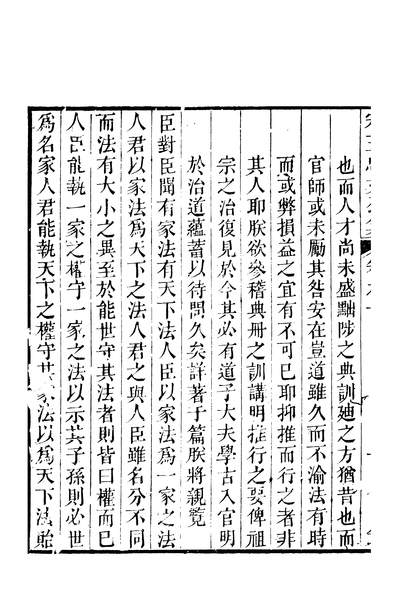 也而人才尚未盛黜陟之典訓廸之方猶昔也而
官師或未勵其咎安在豈道雖久而不渝法有時
而或弊損益之宜有不可已耶抑推而行之者非
其人耶朕欲參稽典册之訓講明推行之要俾祖
宗之治復見於今其必有道子大夫學古入官明
於治道蘊蓄以待問久矣詳著于篇朕將親覽
臣對臣聞有家法有天下法人臣以家法爲一家之法
人君以家法爲天下之法人君之與人臣雖名分不同
而法有大小之異至於能世守其法者則皆曰權而已
人臣能執一家之權守一家之法以示其子孫則必世
爲名家人君能執天下之權守其家法以爲天下法貽